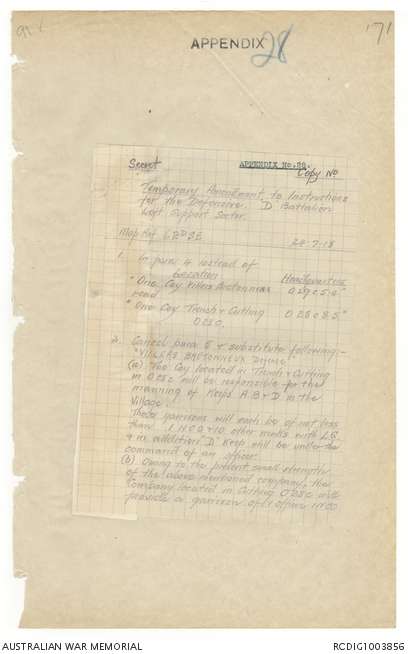 APPENDIX 28
171
Secret
APPENDIX No. 28.
Copy No
Temporary Amendment to Instructions
for the Defensive. D Battalion
Left Support Sector.
Map Ref 62D SE
28-7-18
1. In para 4 instead of
Location Headquarters
"One Coy Villers Bretonneux
road
"One Coy Trench & Cutting
O28C.
2. Cancel para 5 & substitute following:-
"VILLERS BRETONNEUX Defence"
(a) The Coy located in Trench & Cutting
in O28c will be responsible for the
manning of Keeps A.B & D in the
Village
These garrisons will each be of not less
than 1 NCO & 10 other ranks with L.G.
& in addition "D" Keep will be under the
command of an officer.
(b) Owing to the present small strength
of the above mentioned company, the
Company located in Cutting O28c will
provide a garrison of 1 officer 1 NCO
AUSTRALIAN WAR MEMORIAL
RCDIG1003856